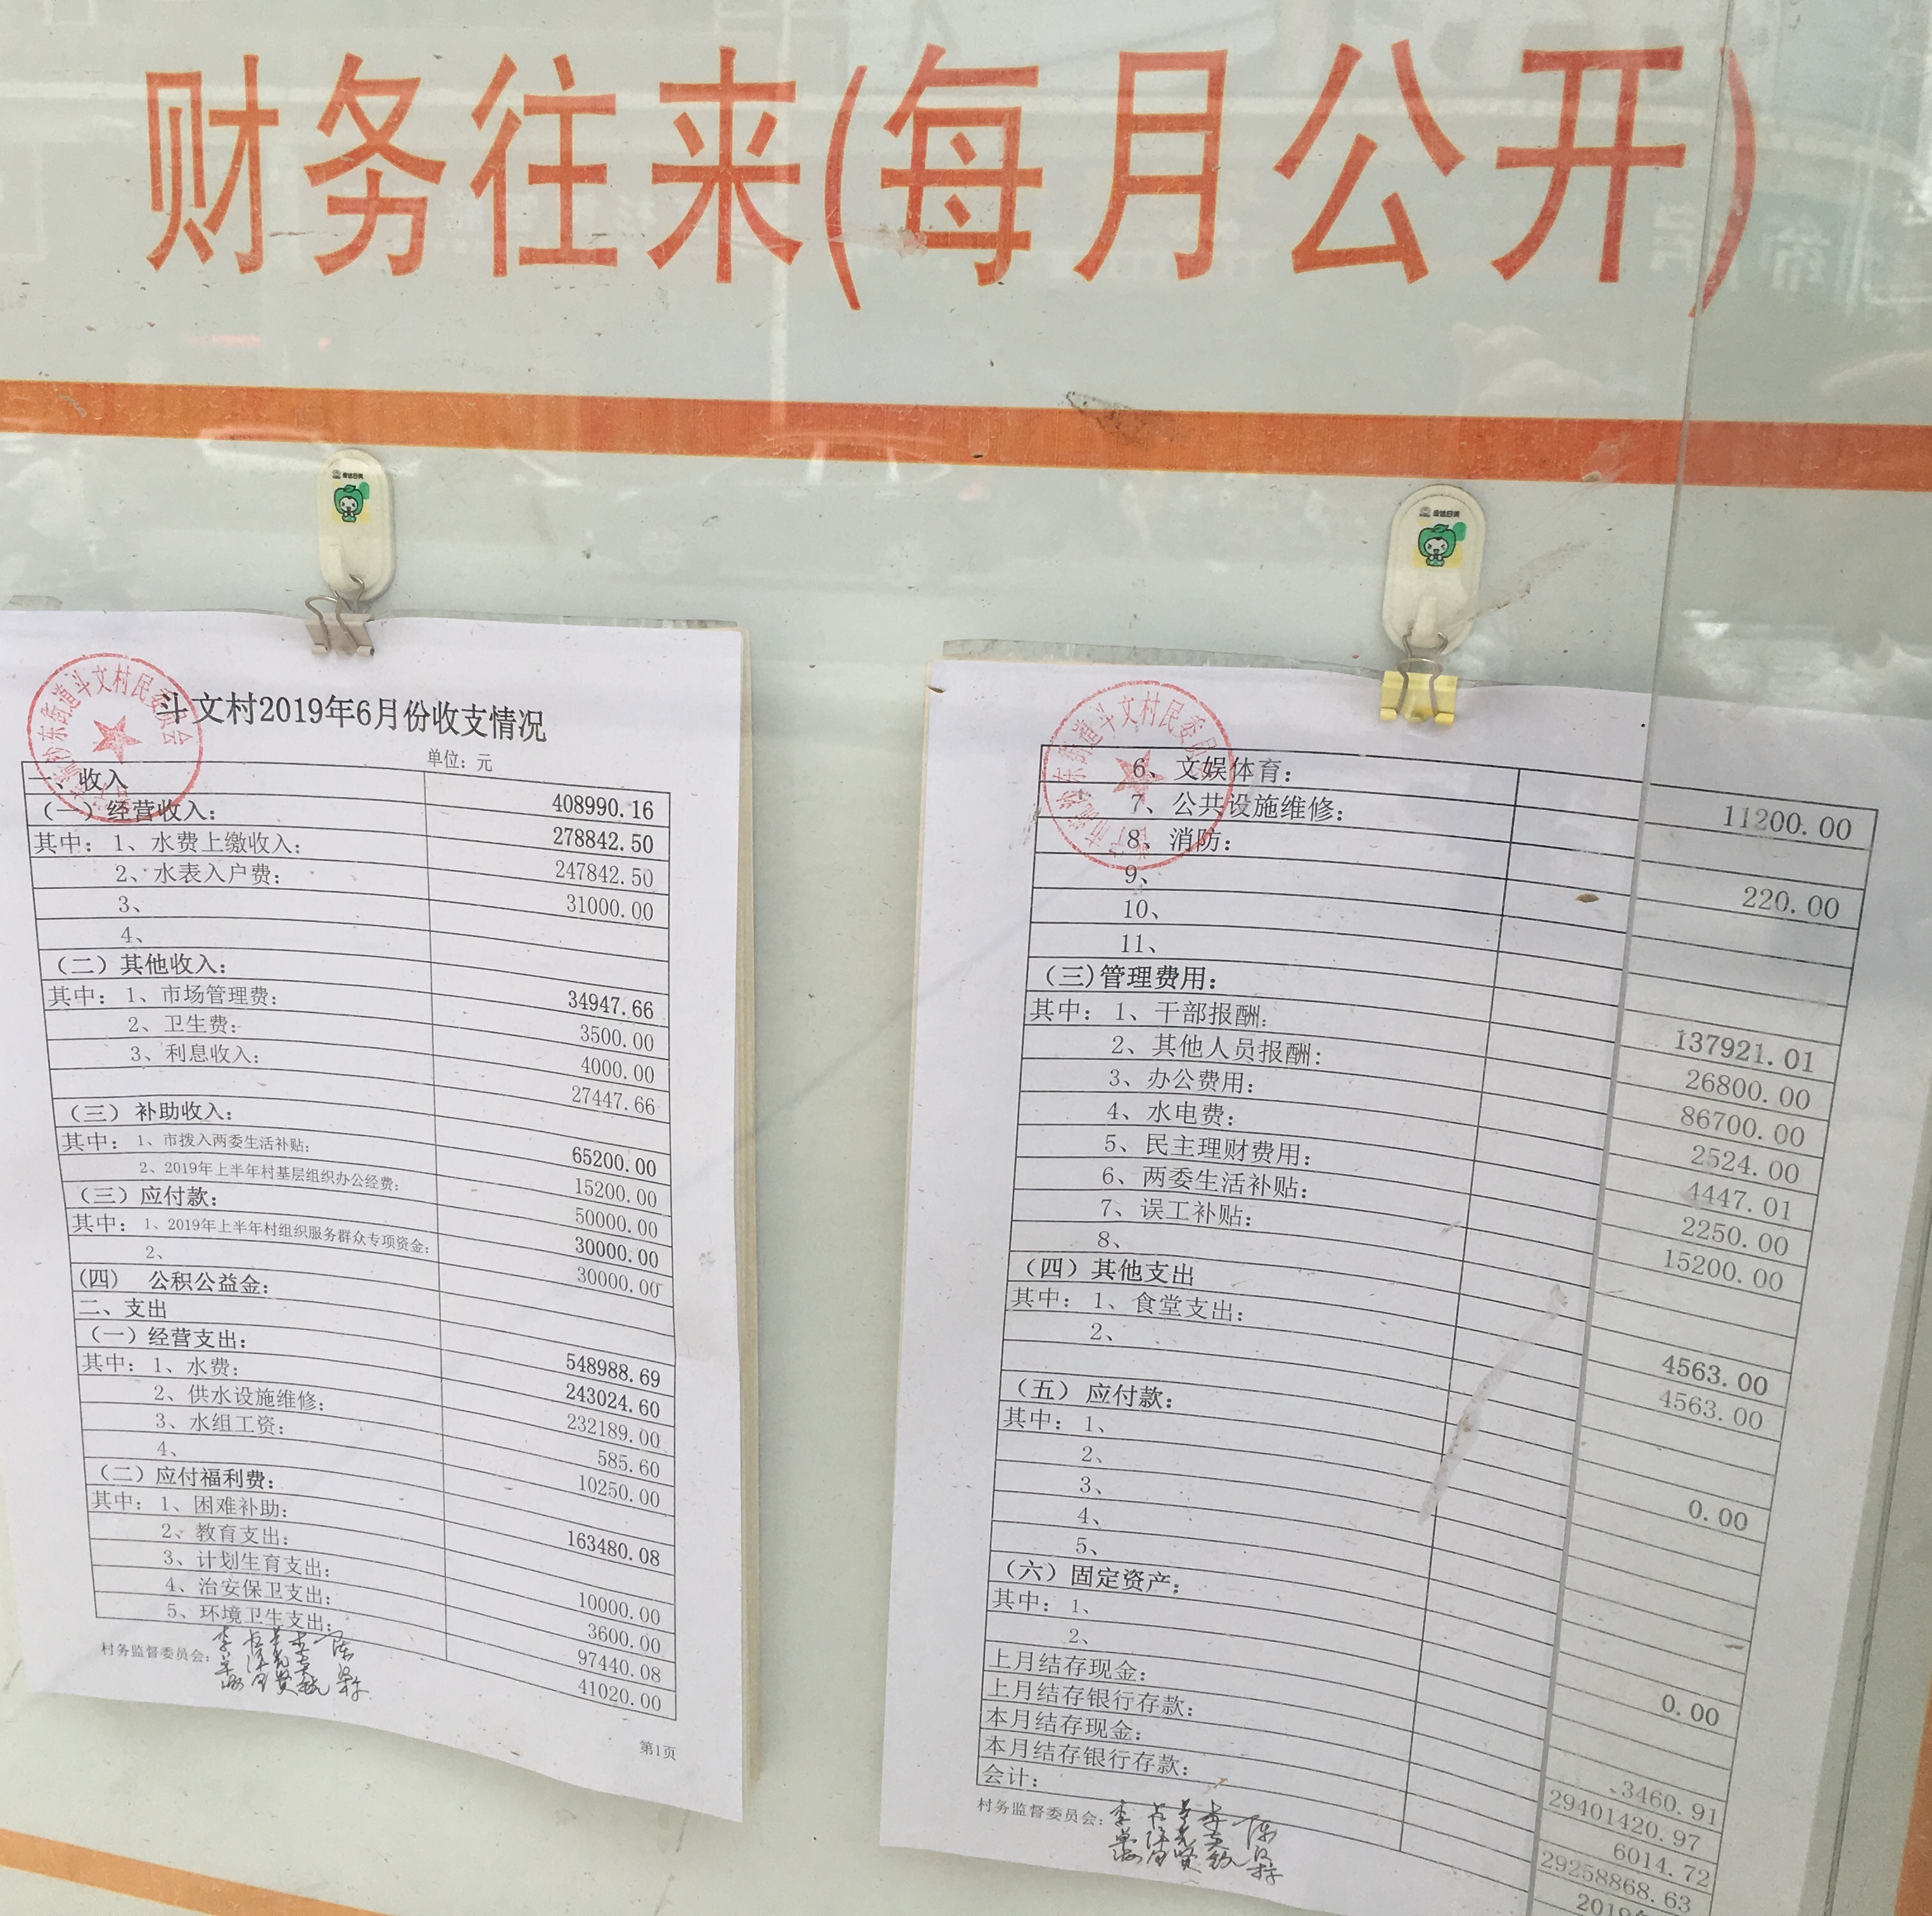 财务往来(每月公开)
斗文村2019年6月份收支情况
单位:元
一、收入 408990.16
(一)经营收入: 278842.50
其中:1、水费上缴收入: 247842.50
2、水表入户费: 31000.00
3、
4、
(二)其他收入: 34947.66
其中:1、市场管理费: 3500.00
2、卫生费: 4000.00
3、利息收入: 27447.66
(三)补助收入: 65200.00
其中:1、市拨入两委生活补贴: 15200.00
2、2019年上半年村基层组织办公经费: 50000.00
(三)应付款: 30000.00
其中:1、2019年上半年村组织服务群众专项资金: 30000.00
2、
(四) 公积公益金:
二、支出 548988.69
(一)经营支出: 243024.60
其中:1、水费: 232189.00
2、供水设施维修: 585.60
3、水组工资: 10250.00
4、
(二)应付福利费: 163480.08
其中:1、困难补助:
2、教育支出: 10000.00
3、计划生育支出: 3600.00
4、治安保卫支出: 97440.08
5、环境卫生支出: 41020.00
村务监督委员会:
第1页
6、文娱体育: 11200.00
7、公共设施维修:
8、消防: 220.00
9、
10、
11、
(三)管理费用: 137921.01
其中:1、干部报酬: 26800.00
2、其他人员报酬: 86700.00
3、办公费用: 2524.00
4、水电费: 4447.01
5、民主理财费用: 2250.00
6、两委生活补贴: 15200.00
7、误工补贴:
8、
(四)其他支出 4563.00
其中:1、食堂支出: 4563.00
2、
(五)应付款: 0.00
其中:1、
2、
3、
4、
5、
(六)固定资产: 0.00
其中:1、
2、
上月结存现金: 3460.91
上月结存银行存款: 29401420.97
本月结存现金: 6014.72
本月结存银行存款: 29258868.63
会计: 2019
村务监督委员会: